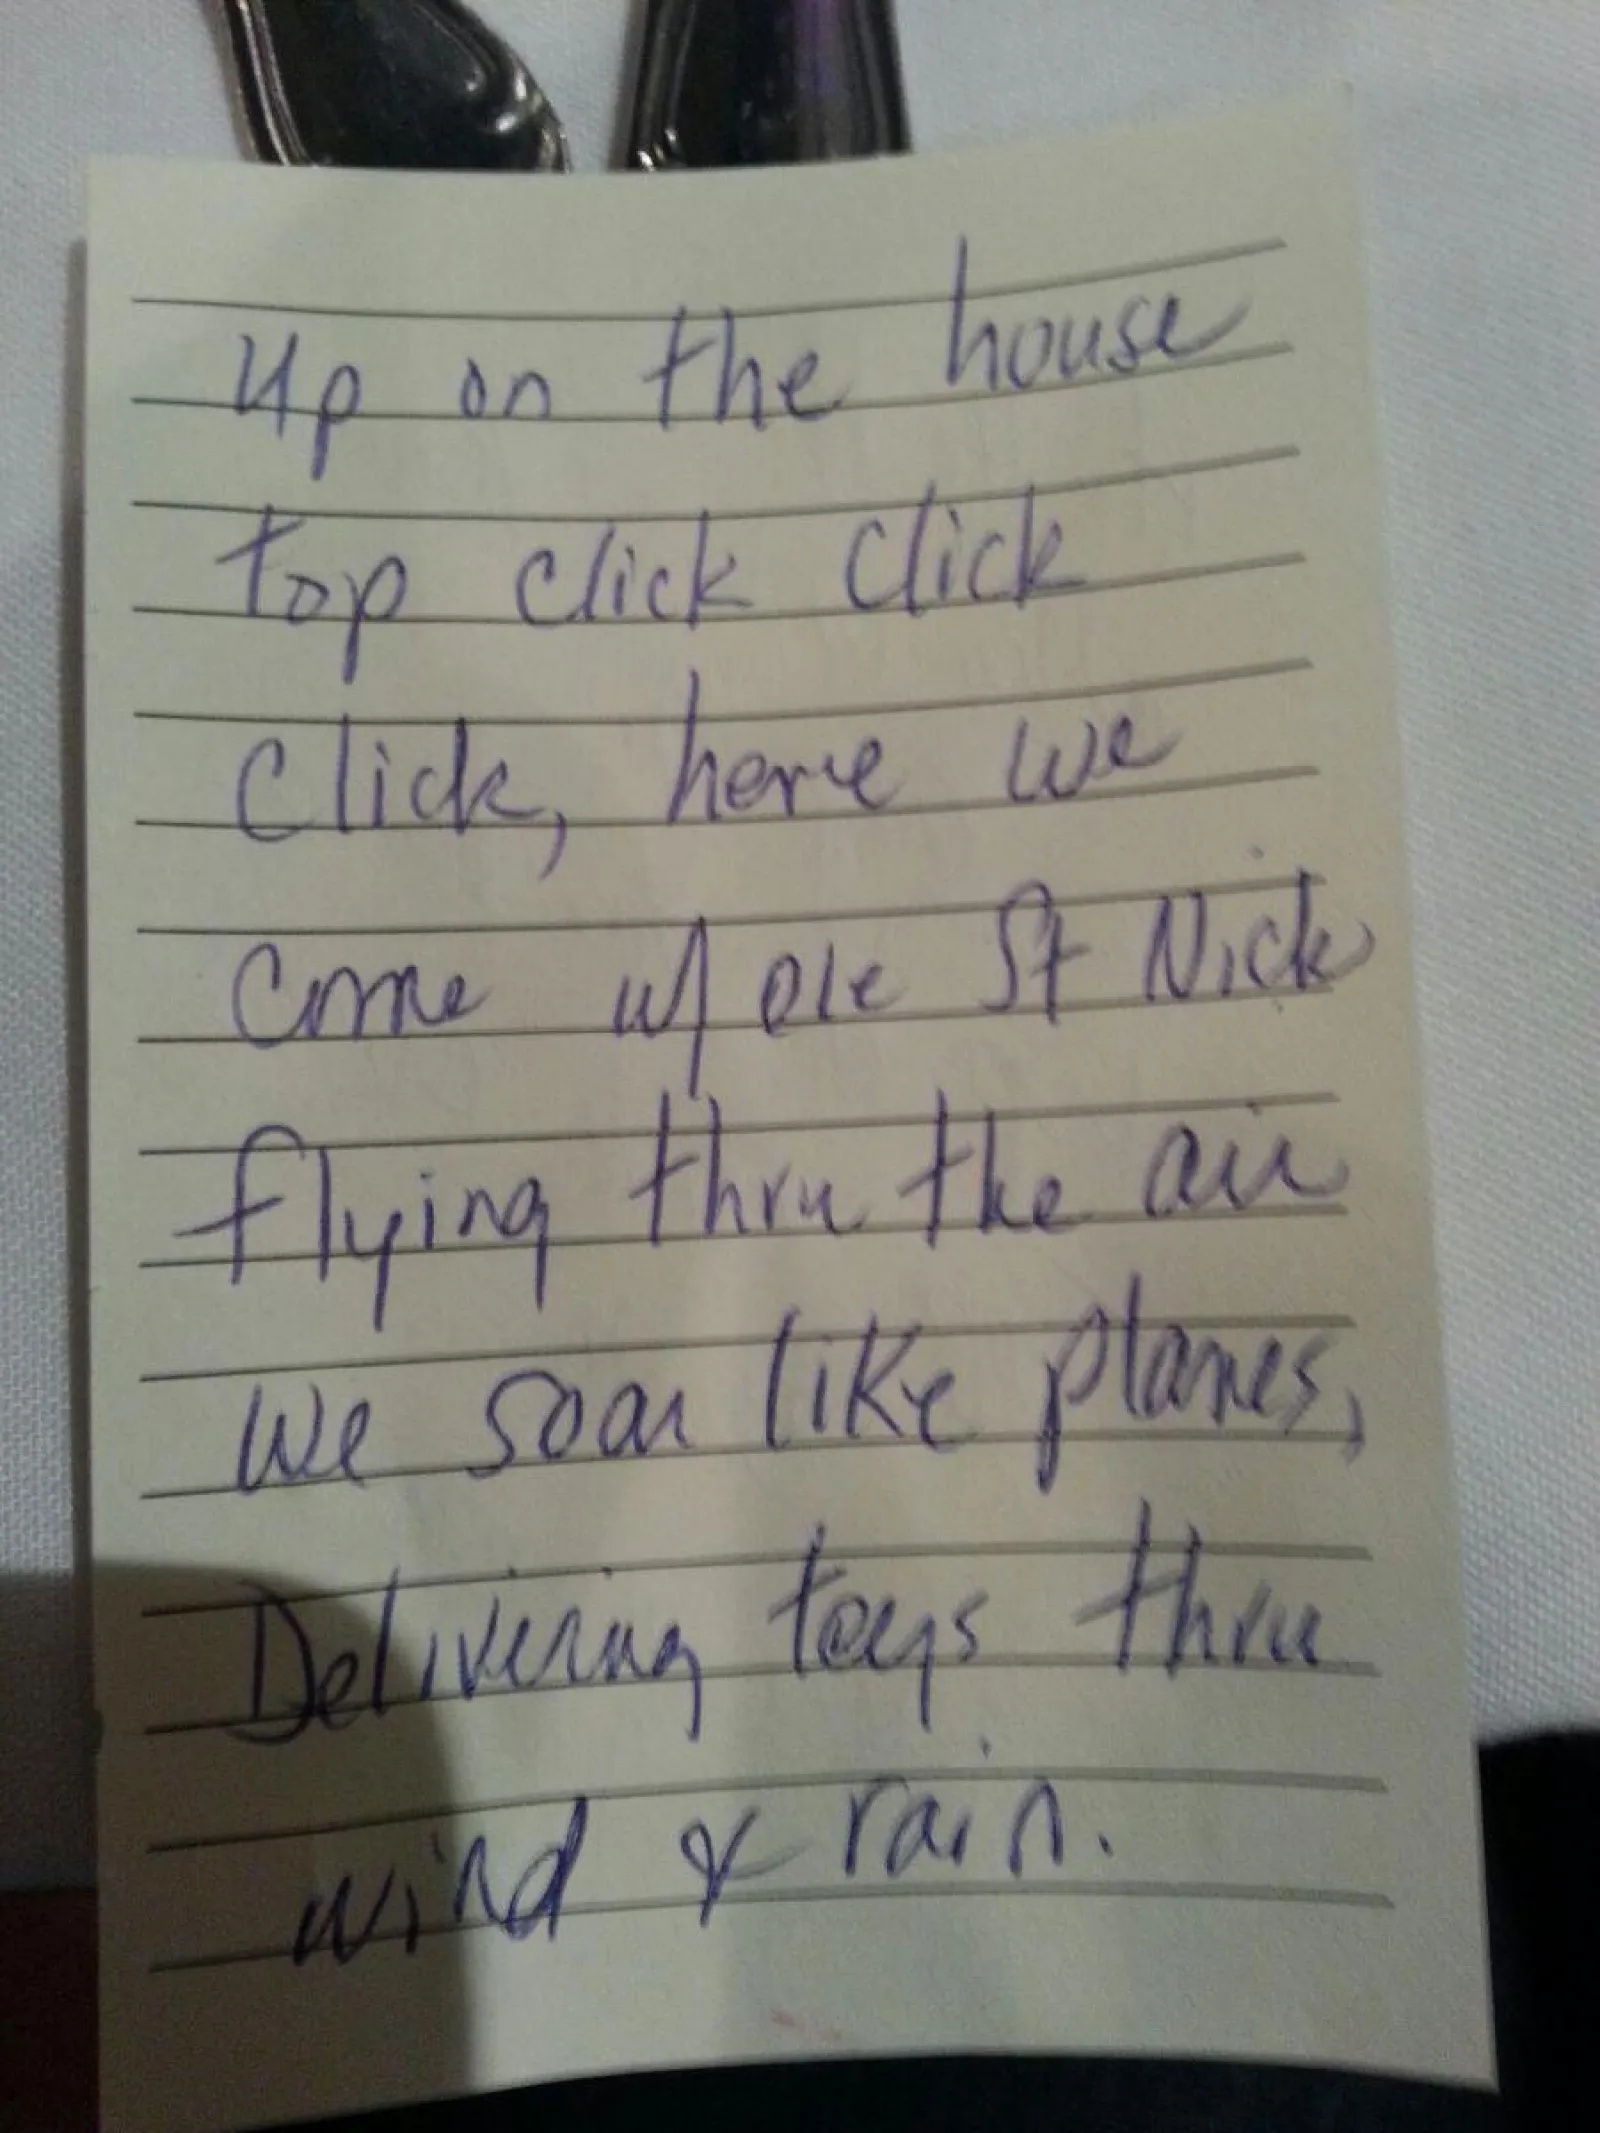 Up on the house
top click click
click, here we
come w/ ole St Nick
flying thru the air
we soar like planes,
Delivering toys thru
wind & rain.